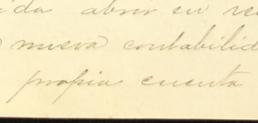 ida abrir su re
nueva contabilid
propia cuenta